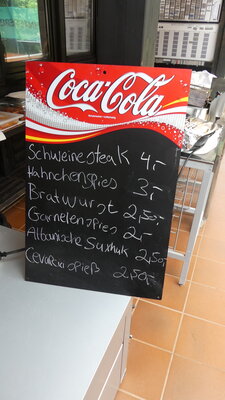 Coca-Cola
Schweinesteak 4,-
Hähnchenspies 3,-
Bratwurst 2,50,-
Garnelenspies 2,-
Albanische 2,50,-
spieß 2,50,-